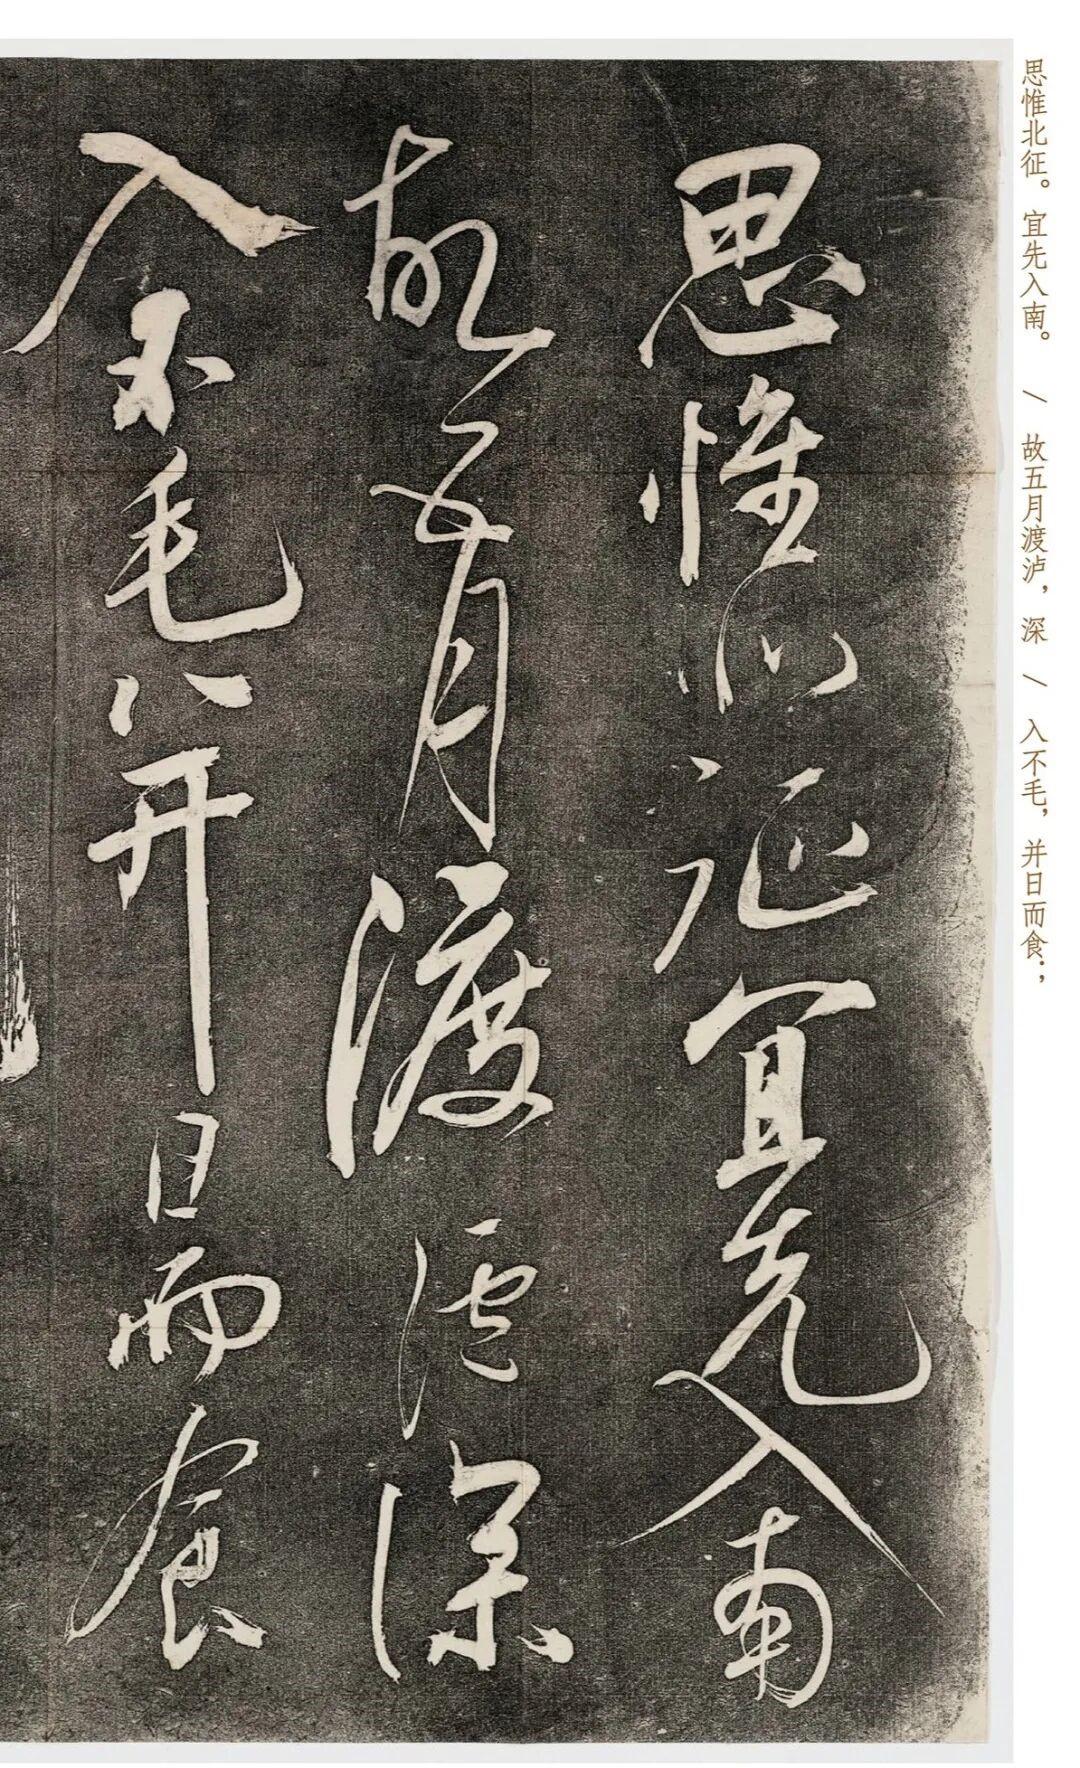 思惟北征。宜先入南。 / 故五月渡泸，深 / 入不毛，并日而食；
思惟北征宜先入南
故五月渡瀘深
入不毛并日而食